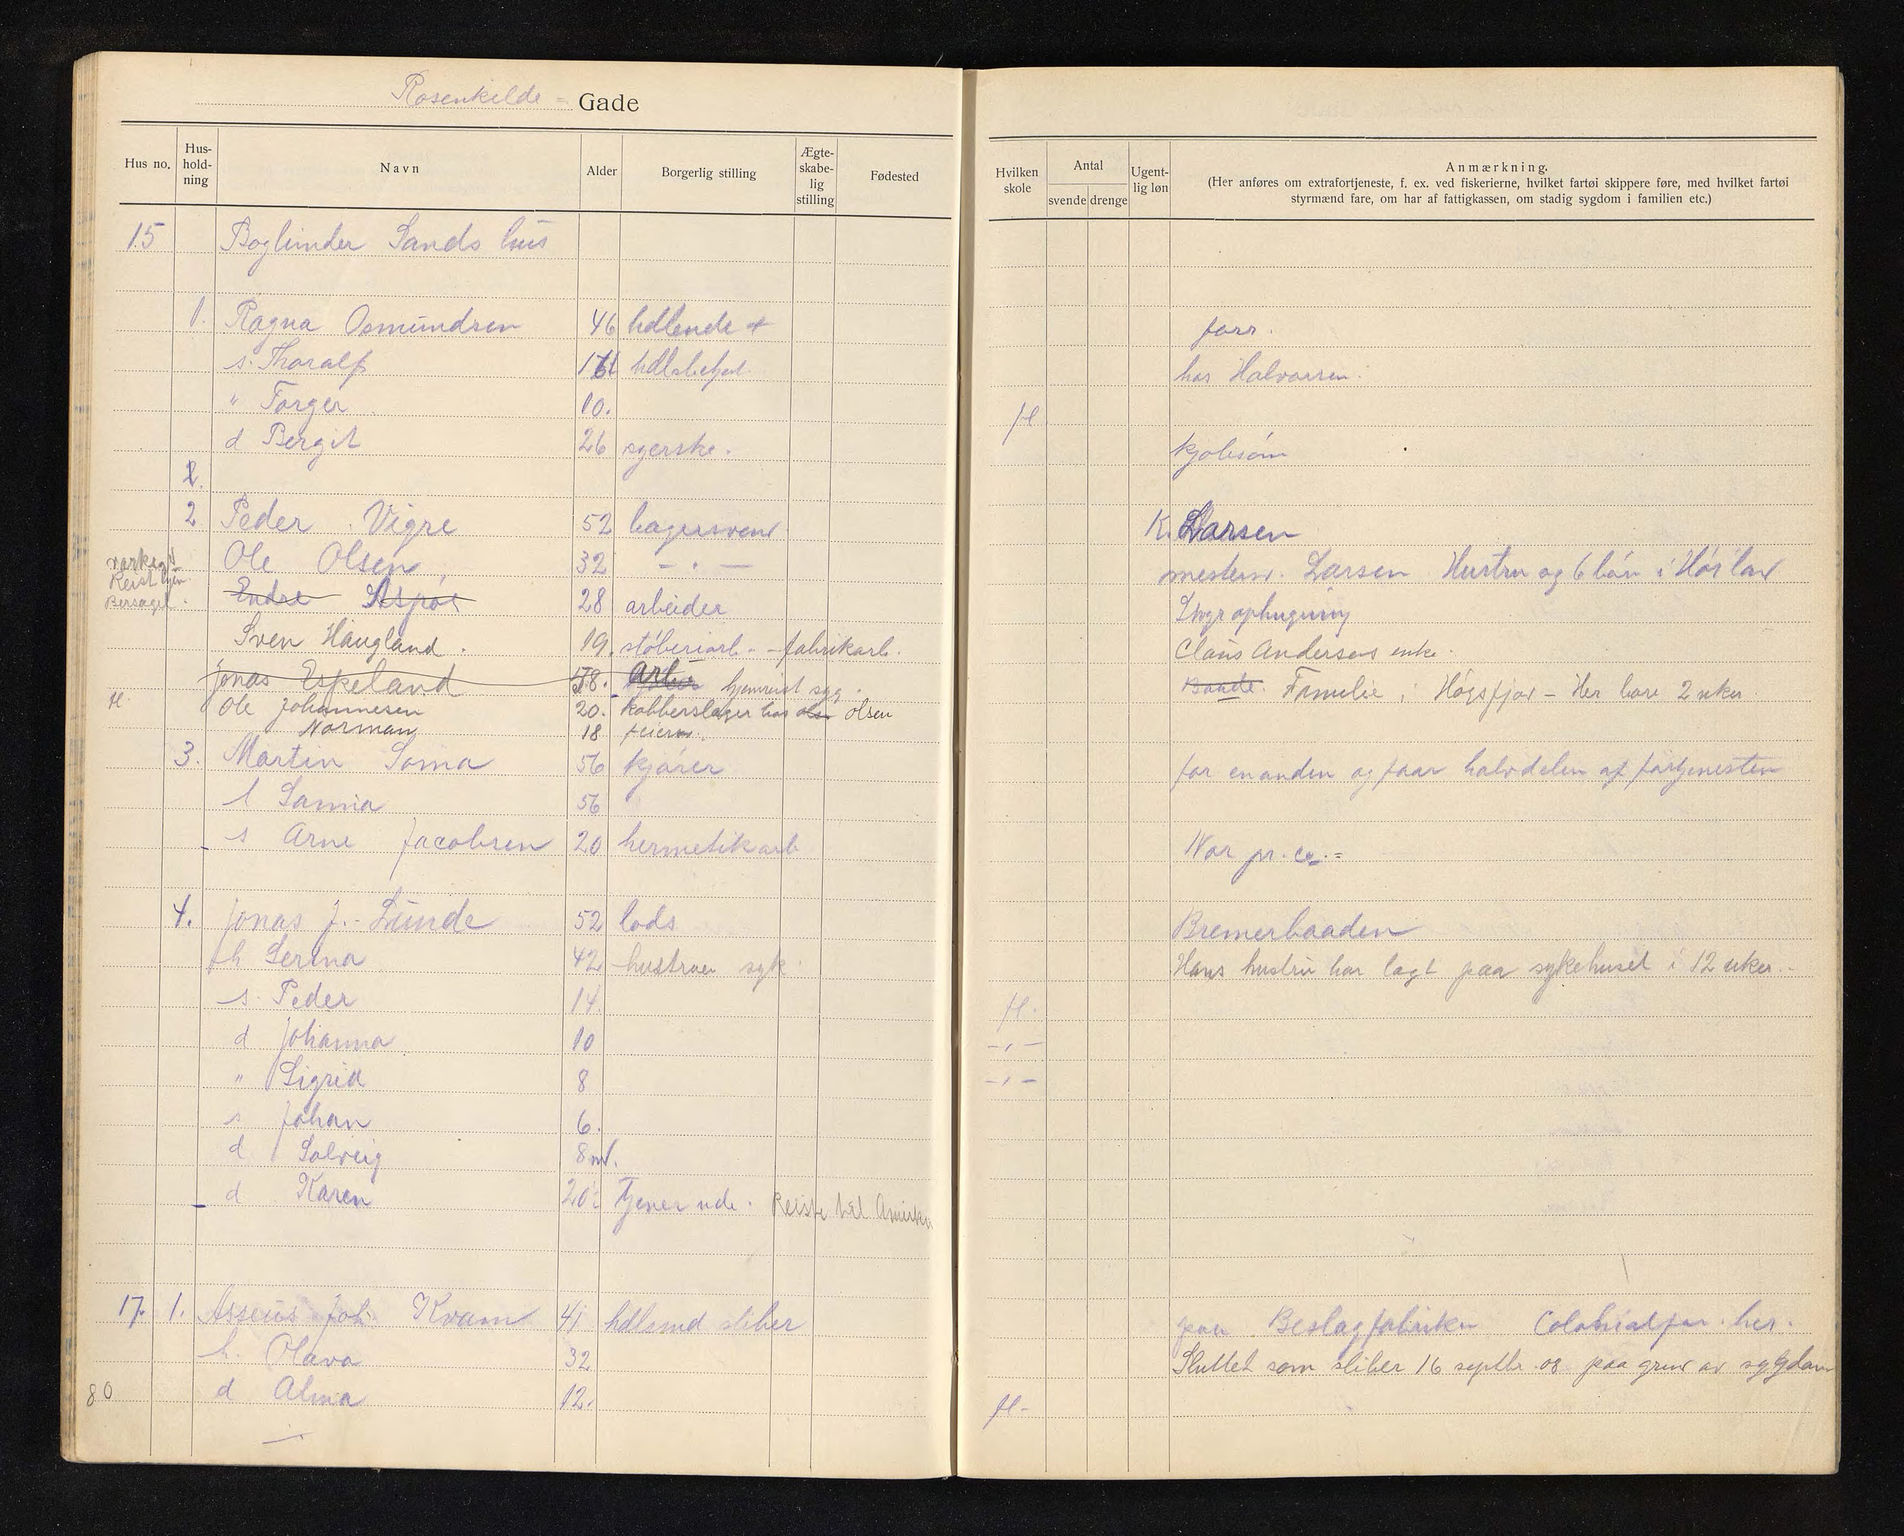 Rosenkilde - Gade
Hus no. Hus-hold-ning Navn Alder Borgerlig stilling Ægte-skabe-lig stilling Fødested Hvilken skole Antal svende drenge Ugent-lig løn Anmærkning.
(Her anføres om extrafortjeneste, f. ex. ved fiskerierne, hvilket fartøi skippere føre, med hvilket fartøi styrmænd fare, om har af fattigkassen, om stadig sygdom i familien etc.)
15 Bogbinder Sands hus
1. Ragna Osmundsen 46 hdlende + forr.
s. Thoralf hdlsbetjent hos Halvorsen.
" Torger 10. H
d Bergit 26 syerske. kjolesöm
2.
2 Peder Vigre 52 bagersvend K. Larsen
Ole Olsen 32 - " - mestersv. Larsen Hustru og 6 börn i
Reist
Endre Aspöe 28 arbeider Skogrophugning
Sven Haugland. 19. stöberiarb. - fabrikarb. Claus Andersens enke.
Jonas Espeland 18. Arb. hjemreist syg. Familie i Högsfjor - Her bare 2 uker
H. Ole Johannesen 20. kobberslager hos Olsen
Norman 18 feier
3. Martin Soma 56 kjörer for en anden og faar halvdelen af fortjenesten
h Samia 56
s Arne Jacobsen 20 hermetikarb Nor pr. co. =
4. Jonas J. Lunde 52 lods Bremerbaaden
h Serina 42 hustruen syk. Hans hustru har lagt paa sykehuset i 12 uker. -
s. Peder 14. H.
d Johanna 10 - " -
" Sigrid 8 - " -
s Johan 6.
d Solveig 8 md.
d Karen 20 Tjener ude. Reiste til Amerika
17. 1. Asseus Joh. Kvam 41 hdlsmd sliber paa Beslagfabriken Colonialfor. her.
h. Olava 32 Sluttet som sliber 16 septbr. 08 paa grund av sygdom
80 d Alma 12. H.